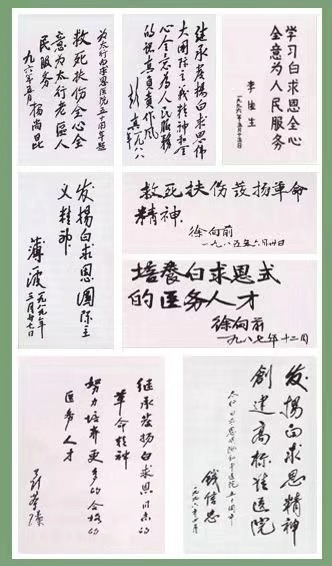 为太行白求恩医院五十周年题
救死扶伤全心全
意为太行老区人
民服务
一九九六年五月 杨尚昆
继承发扬白求恩伟
大国际主义精神和全
心全意为人民服务
学习白求恩全心
全意为人民服务
李德生
一九九六年五月十五日
发扬白求恩国际主
义精神
薄一波 一九八九年
三月廿七日
救死扶伤发扬革命
精神
徐向前
一九八五年六月廿四日
培养白求恩式
的医务人才
徐向前
一九八七年十二月
继承发扬白求恩同志的
革命精神
努力培养更多的合格的
医务人才
聂荣臻
发扬白求恩精神
创建高标准医院
钱信忠
一九九六年四月